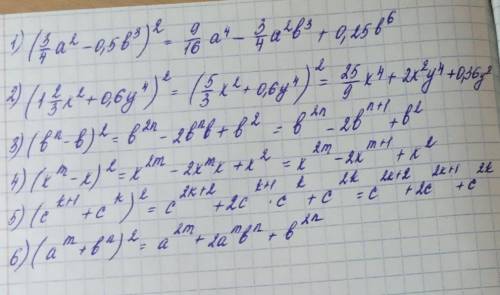 1) (3/4 a² - 0,5b³)² = 9/16 a⁴ - 3/4 a²b³ + 0,25b⁶
2) (1 2/3 x² + 0,6y⁴)² = (5/3 x² + 0,6y⁴)² = 25/9 x⁴ + 2x²y⁴ + 0,36y⁸
3) (bⁿ - b)² = b²ⁿ - 2bⁿb + b² = b²ⁿ - 2bⁿ⁺¹ + b²
4) (xᵐ - x)² = x²ᵐ - 2xᵐx + x² = x²ᵐ - 2xᵐ⁺¹ + x²
5) (cᵏ⁺¹ + cᵏ)² = c²ᵏ⁺² + 2cᵏ⁺¹ · cᵏ + c²ᵏ = c²ᵏ⁺² + 2c²ᵏ⁺¹ + c²ᵏ
6) (aᵐ + bⁿ)² = a²ᵐ + 2aᵐbⁿ + b²ⁿ